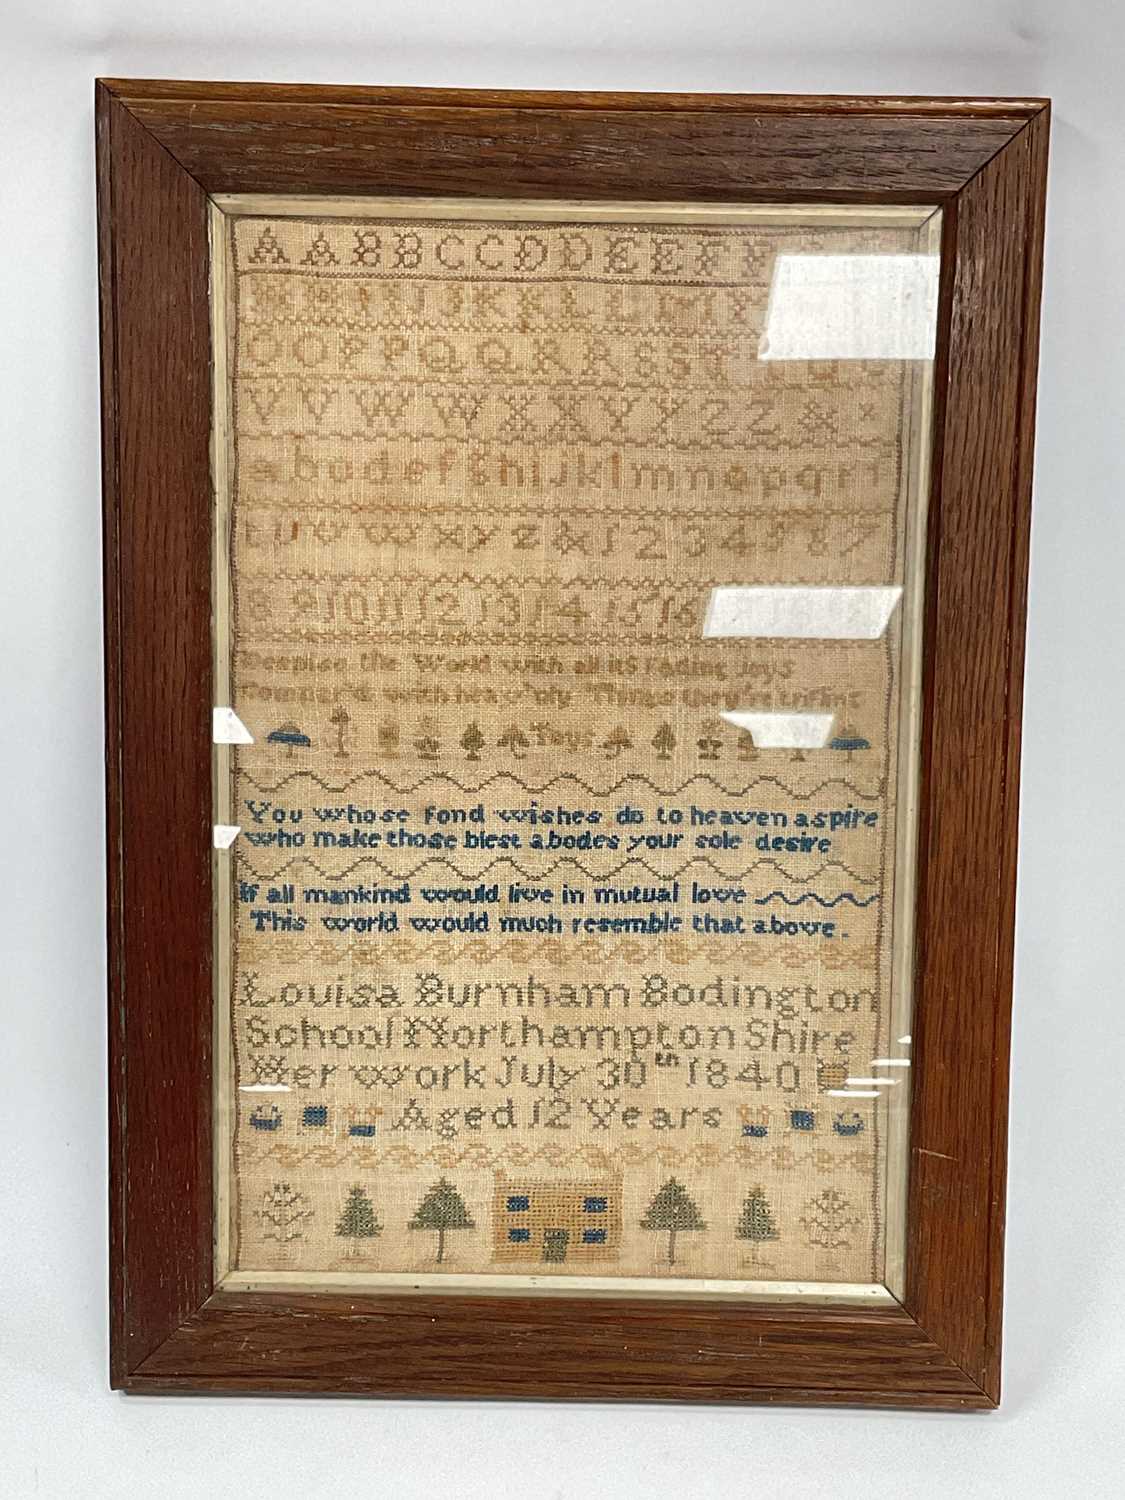 A A B B C C D D E E F F
H H I I J J K K L L M
O O P P Q Q R R S S T
V V W W X X Y Y Z Z &
a b c d e f g h i j k l m n o p q r
t u v w x y z & 1 2 3 4 5 6 7
8 9 10 11 12 13 14 15 16
Despise the World with all its Fading Joys
Compar'd with heav'nly Things they're trifling
Toys
You whose fond wishes do to heaven aspire
who make those blest abodes your sole desire
If all mankind would live in mutual love
This world would much resemble that above.
Louisa Burnham Bodington
School Northampton Shire
Her Work July 30th 1840
Aged 12 Years